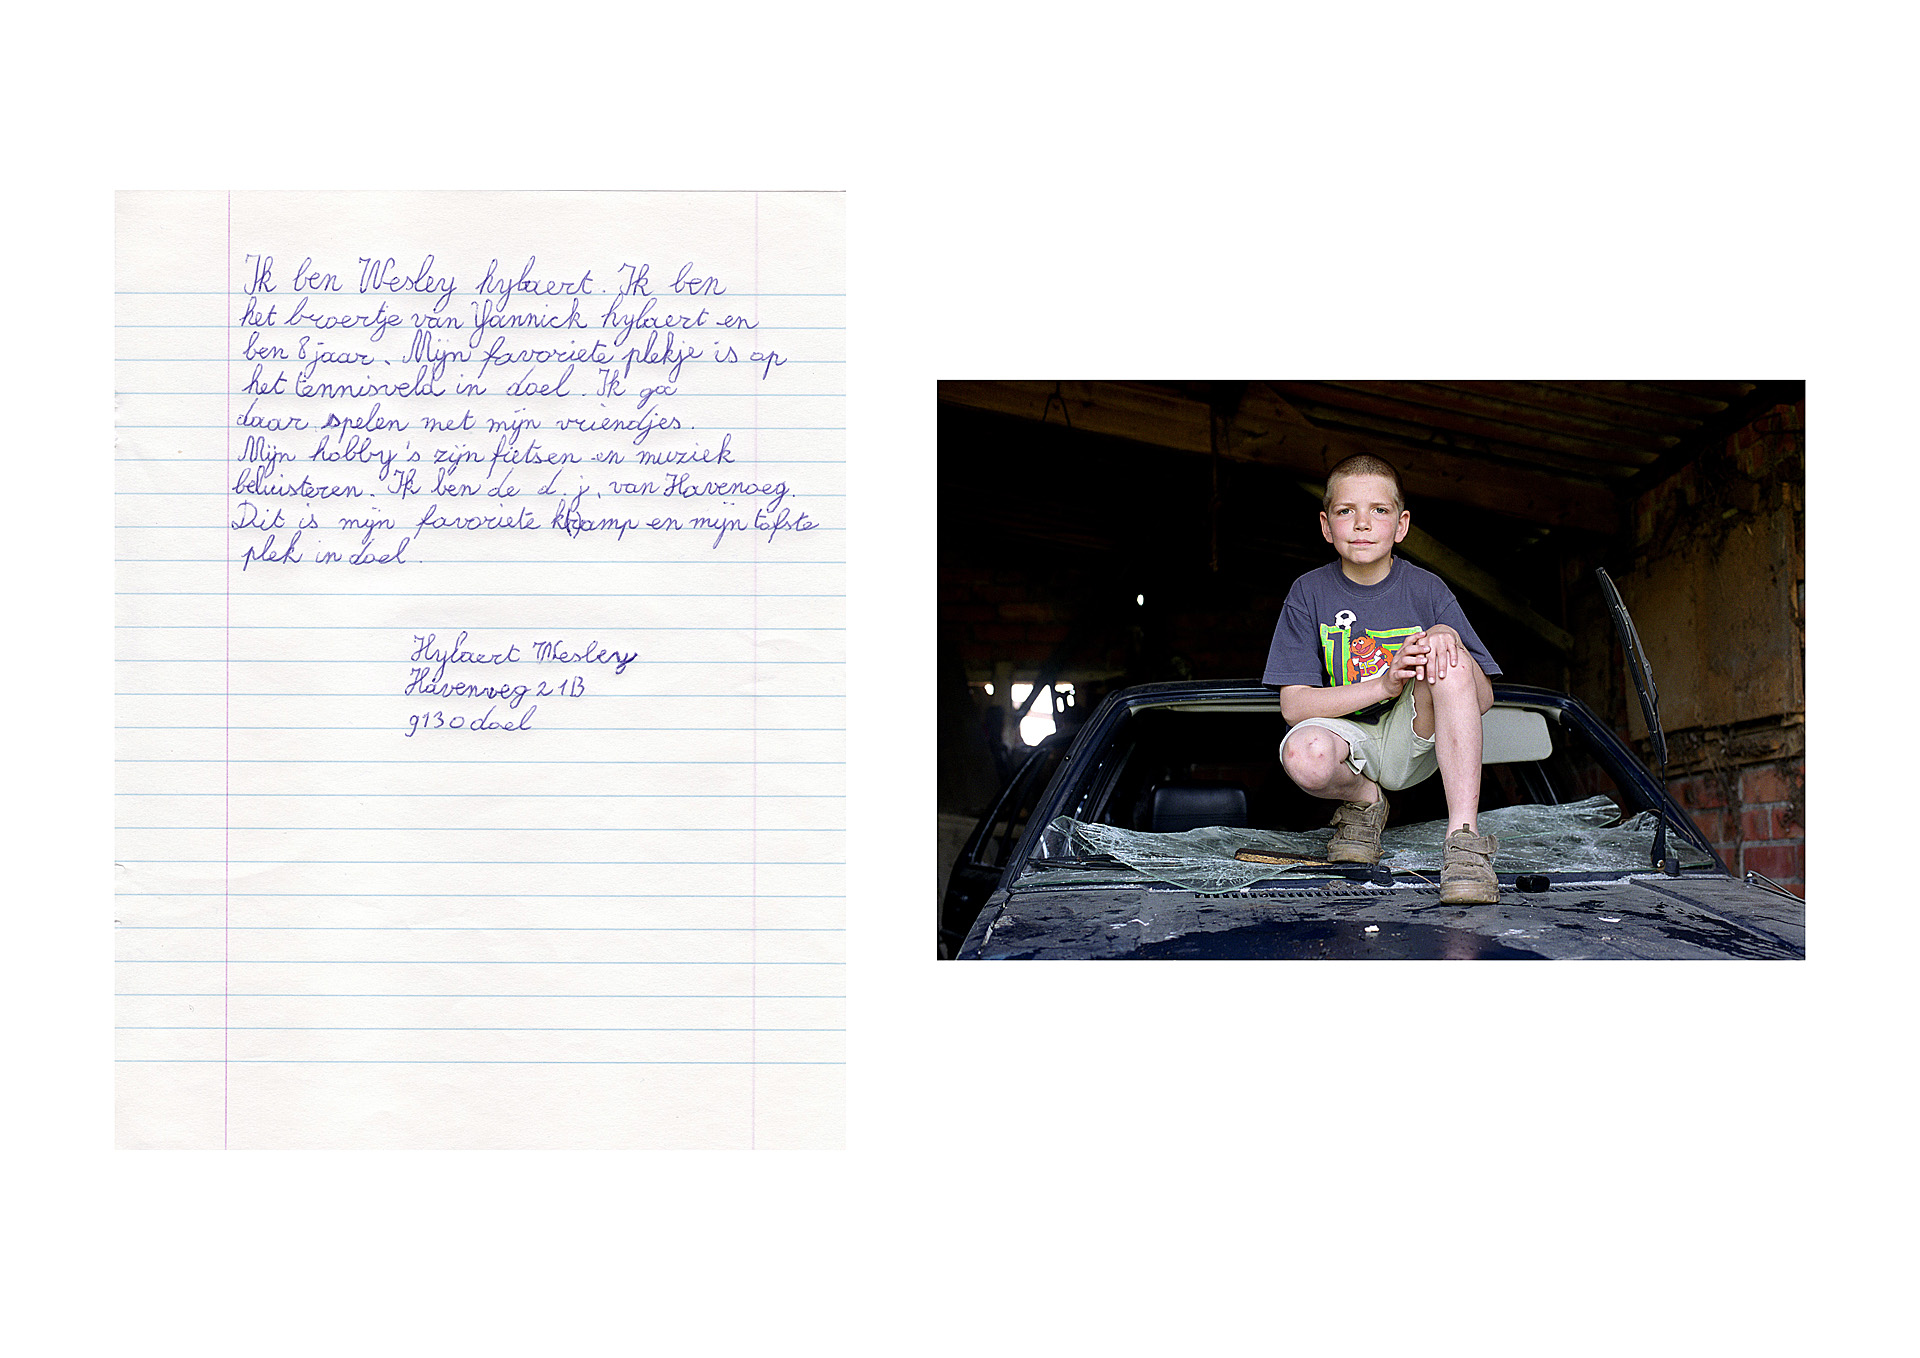 Ik ben Wesley hylaert. Ik ben
het broertje van Yannick hylaert en
ben 8 jaar. Mijn favoriete plekje is op
het tennisveld in doel. Ik ga
daar spelen met mijn vriendjes.
Mijn hobby's zijn fietsen en muziek
beluisteren. Ik ben de d.j. van Havenweg.
Dit is mijn favoriete k(r)amp en mijn tofste
plek in doel.
Hylaert Wesley
Havenweg 21B
9130 doel